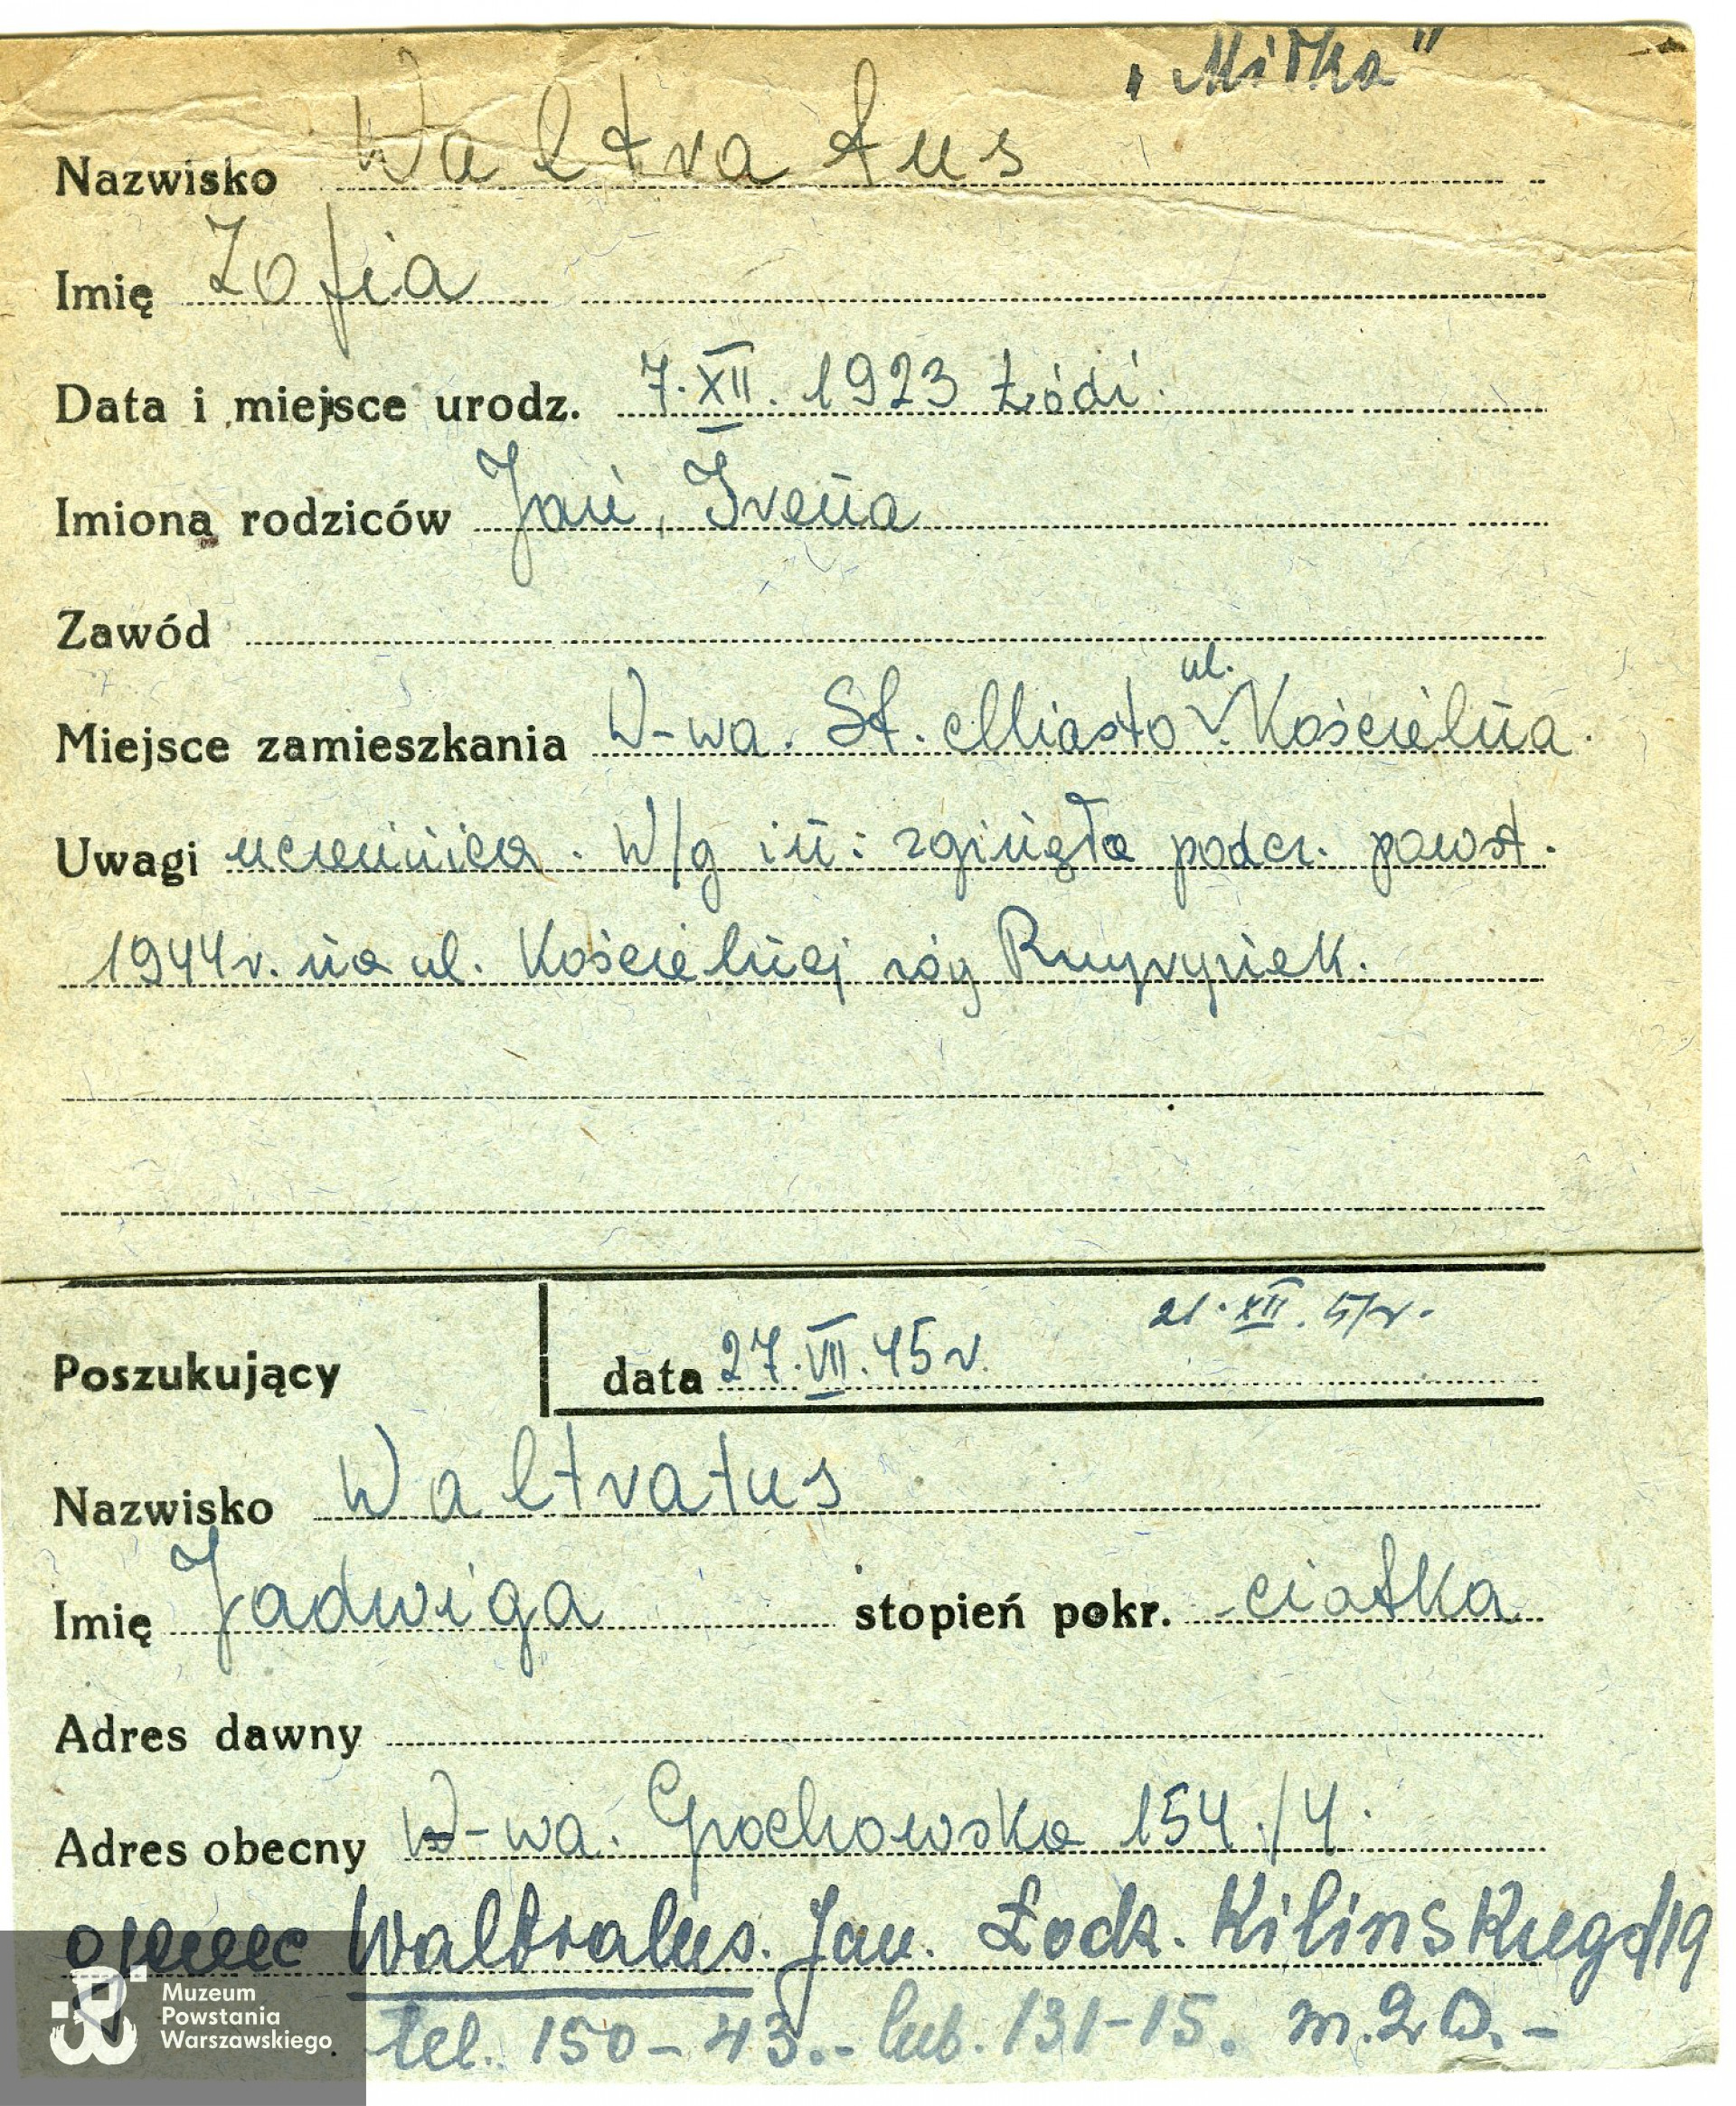 „Mirka"
Nazwisko Waltratus
Imię Zofia
Data i miejsce urodz. 7.XII.1923 Łódź.
Imiona rodziców Jan, Irena
Zawód
ul.
Miejsce zamieszkania W-wa. St. Miasto Kościelna.
Uwagi uczennica. W/g in: zginęła podcz. powst.
1944r. na ul. Kościelnej róg Przyrynek.
21.XII.
Poszukujący data 27.VII.45 r.
Nazwisko Waltratus
Imię Jadwiga stopień pokr. ciotka
Adres dawny
Adres obecny W-wa. Grochowska 154/4.
ojciec Waltratus. Jan. Łódź. Kilinskiego/19
tel. 150-43.- lub. 131-15. m.20.-
Muzeum
Powstania
Warszawskiego